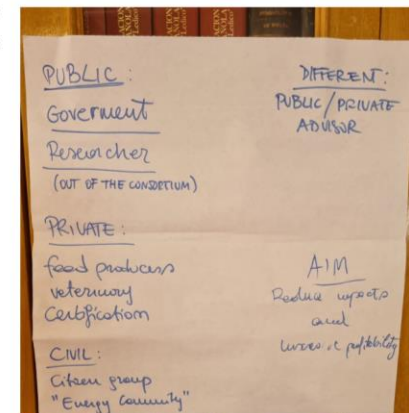 PUBLIC:
Goverment
Researcher
(OUT OF THE CONSORTIUM)
PRIVATE:
food producers
veterinary
Certification
CIVIL:
Citizen group
"Energy Community"
DIFFERENT:
PUBLIC/PRIVATE
ADVISOR
AIM
Reduce impacts
and
increase profitability